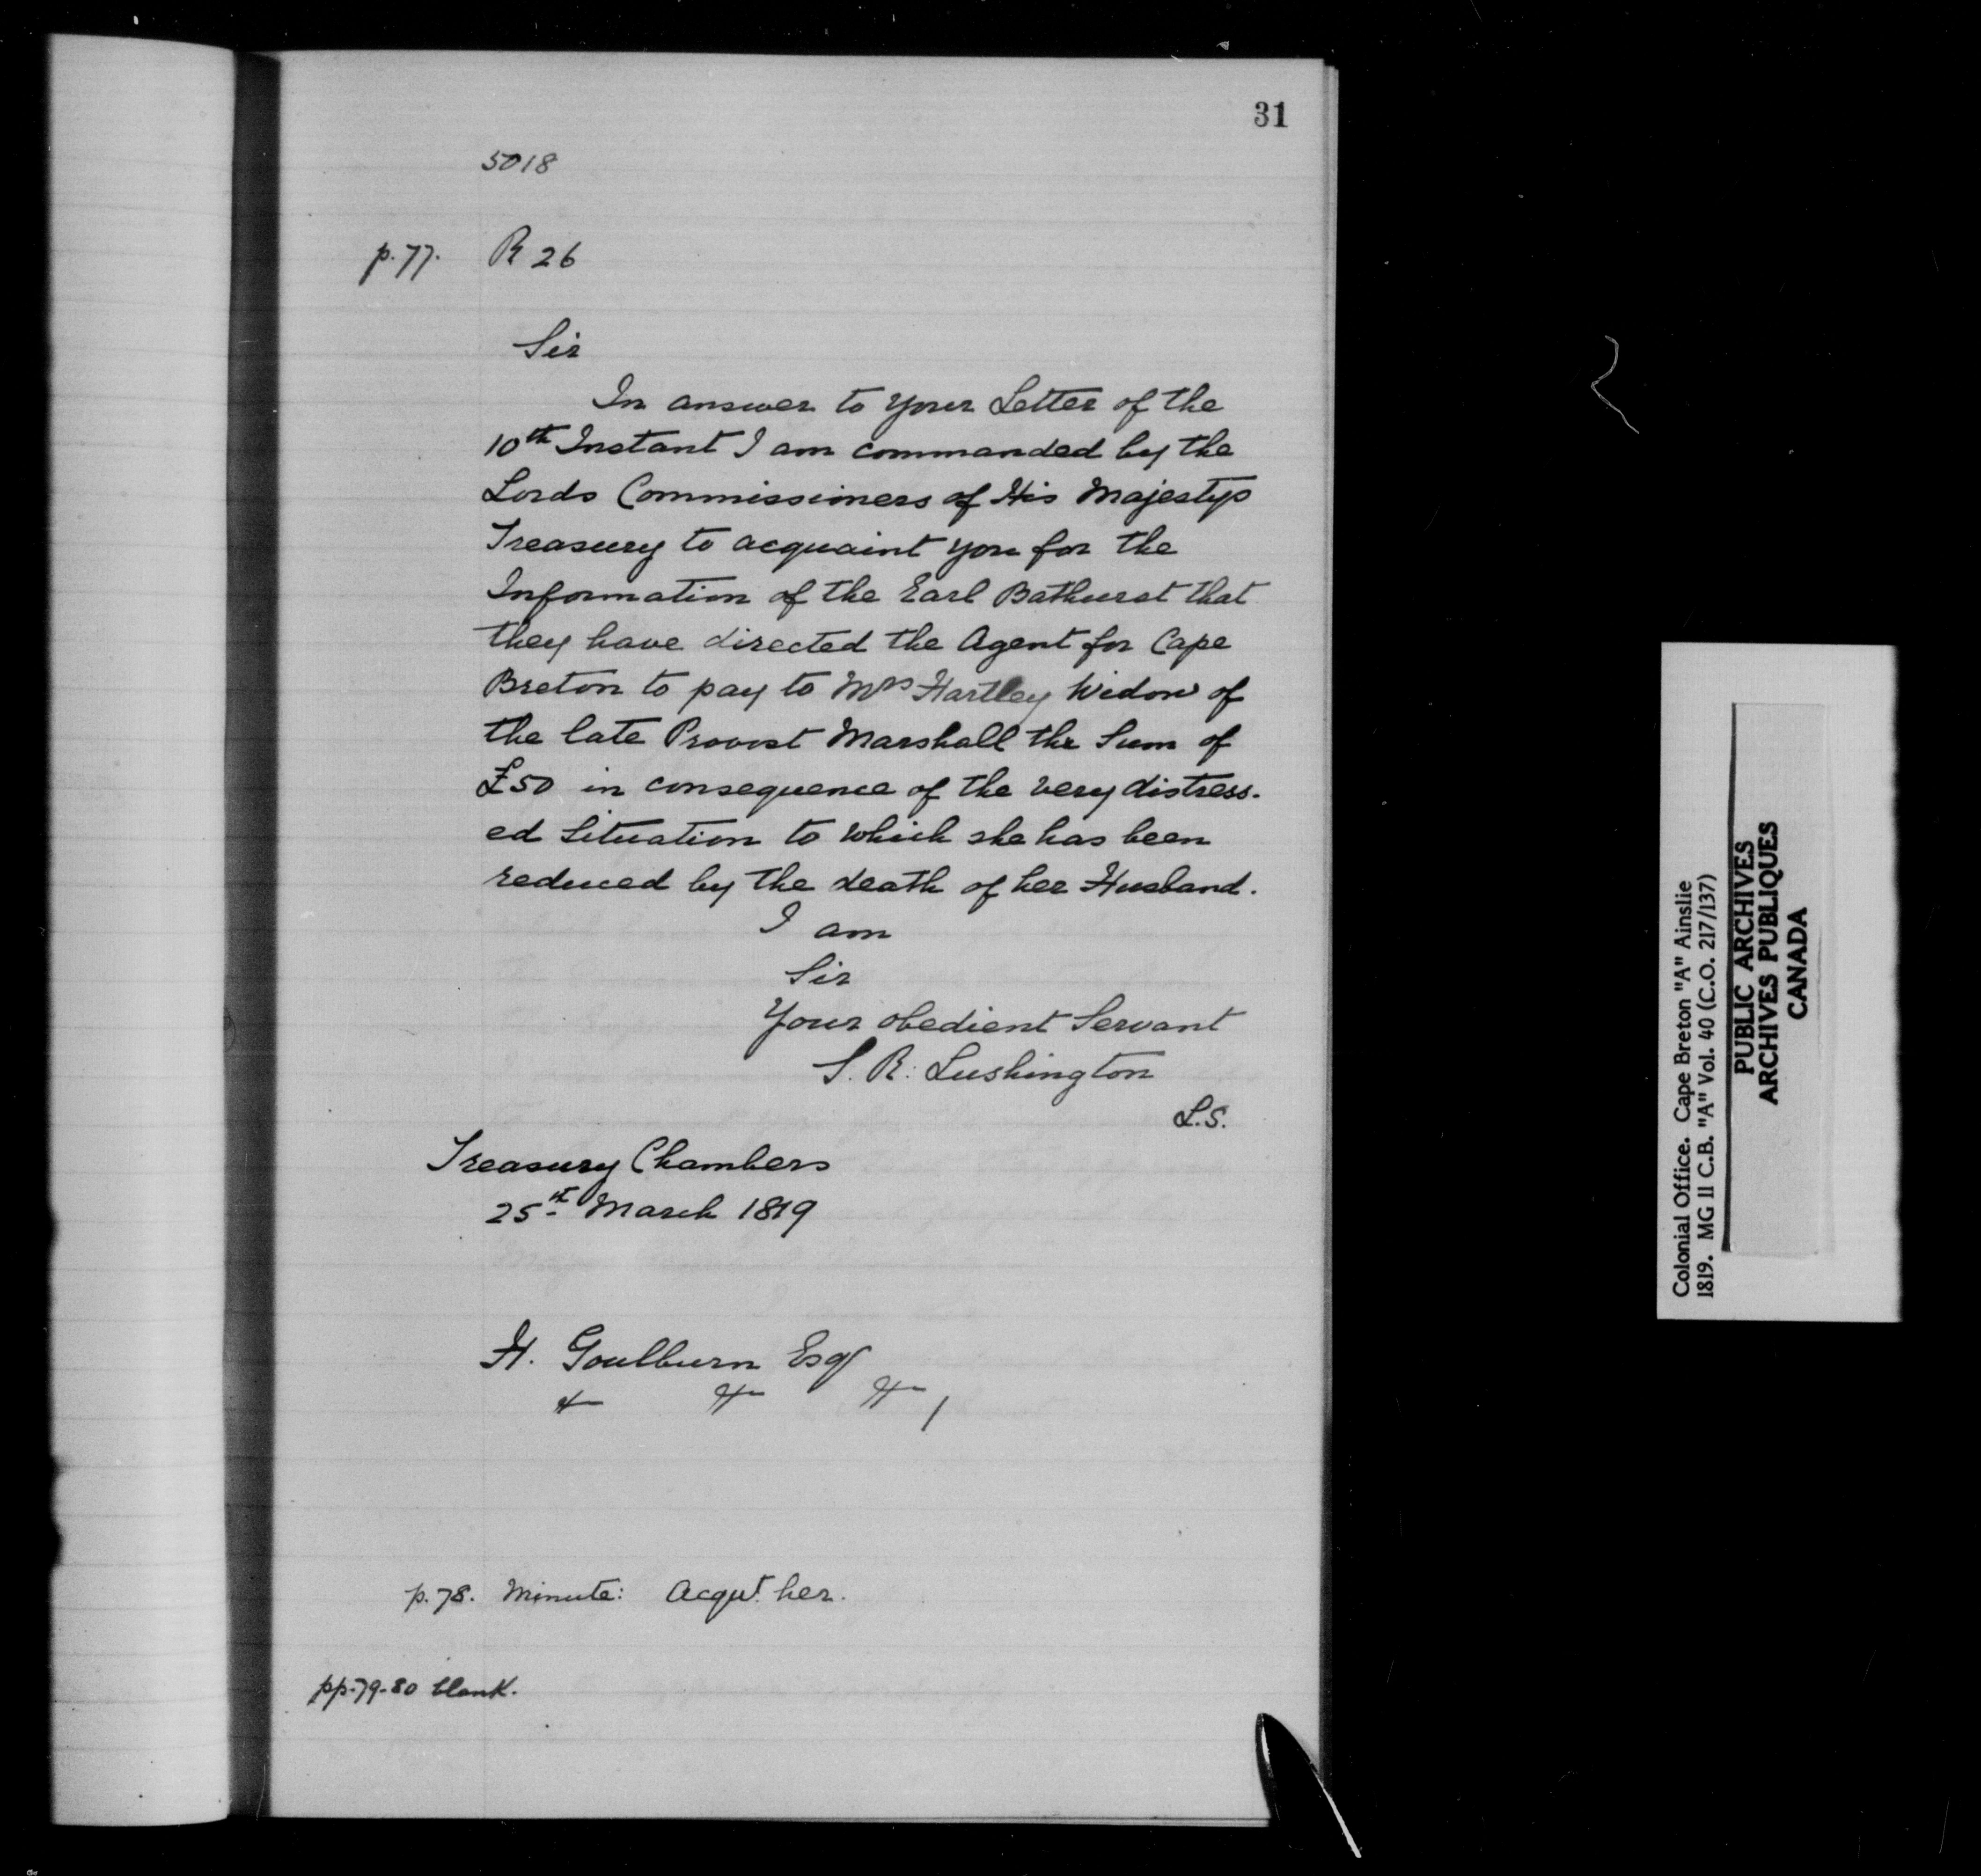 31
5018
p.77. R 26
Sir
In answer to your Letter of the
10th Instant I am commanded by the
Lords Commissioners of His Majestys
Treasury to acquaint you for the
Information of the Earl Bathurst that
they have directed the Agent for Cape
Breton to pay to Mrs Hartley Widow of
the late Provost Marshall the Sum of
£50 in consequence of the very distress-
ed Situation to which she has been
reduced by the death of her Husband.
I am
Sir
Your obedient Servant
S. R: Lushington
L.S.
Treasury Chambers
25th March 1819
H. Goulburn Esqr
p.78. Minute: Acqut. her.
pp.79-80 blank.
Colonial Office. Cape Breton "A" Ainslie
1819. MG 11 C.B. "A" Vol. 40 (C.O. 217/137)
PUBLIC ARCHIVES
ARCHIVES PUBLIQUES
CANADA